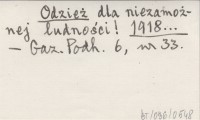 Odzież dla niezamoż-
nej ludności! 1918...
— Gaz. Podh. 6, nr 33.